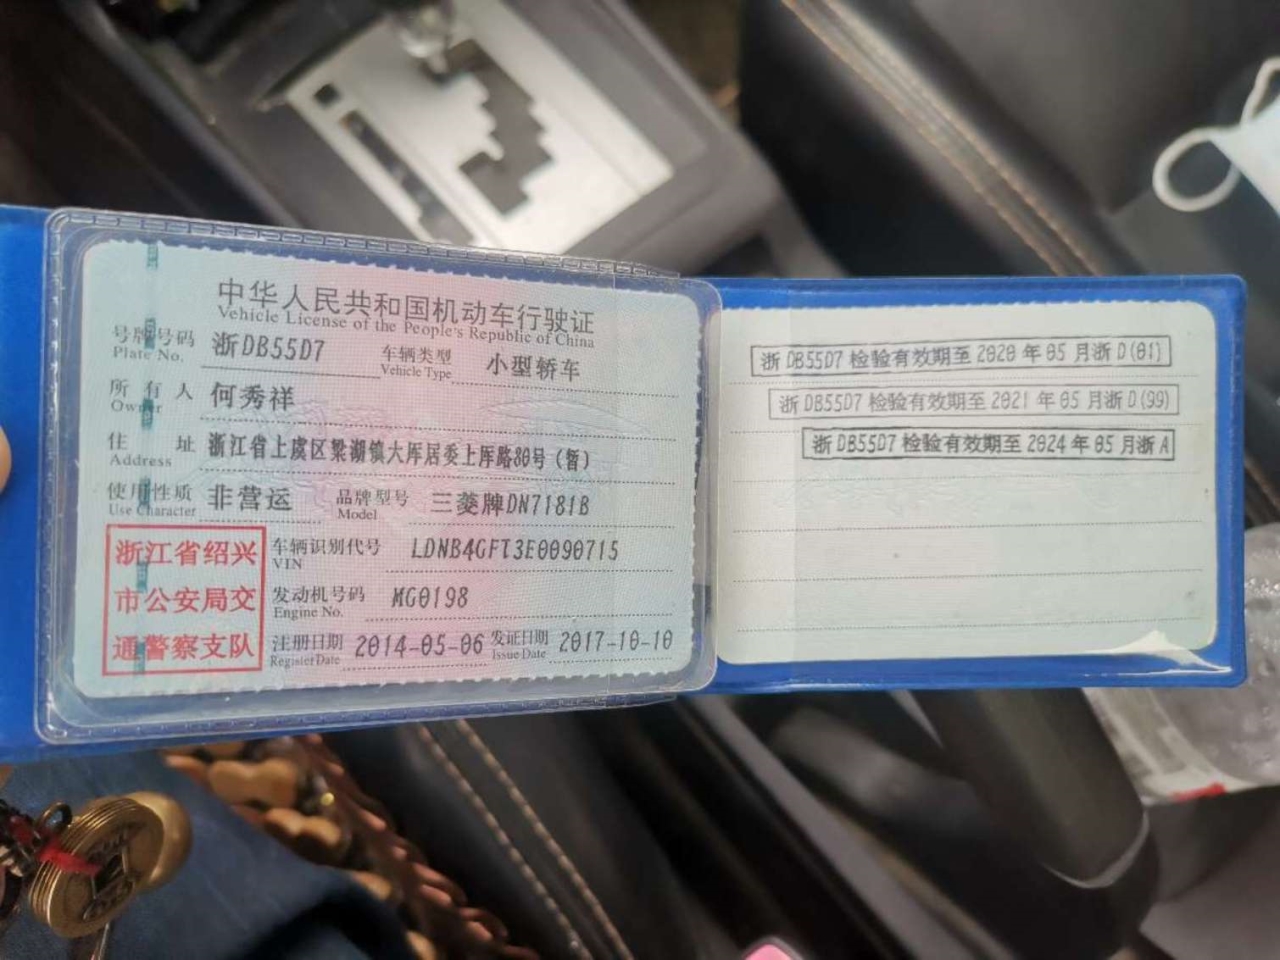 中华人民共和国机动车行驶证
Vehicle License of the People's Republic of China
号牌号码 浙DB55D7 车辆类型 小型轿车
Plate No. Vehicle Type
所有人 何秀祥
Owner
住址 浙江省上虞区梁湖镇大厍居委上厍路80号（暂）
Address
使用性质 非营运 品牌型号 三菱牌DN7181B
Use Character Model
浙江省绍兴
市公安局交
通警察支队
车辆识别代号 LDNB4GFT3E0090715
VIN
发动机号码 MG0198
Engine No.
注册日期 2014-05-06 发证日期 2017-10-10
Register Date Issue Date
浙DB55D7检验有效期至2020年05月浙D(01)
浙DB55D7检验有效期至2021年05月浙D(99)
浙DB55D7检验有效期至2024年05月浙A